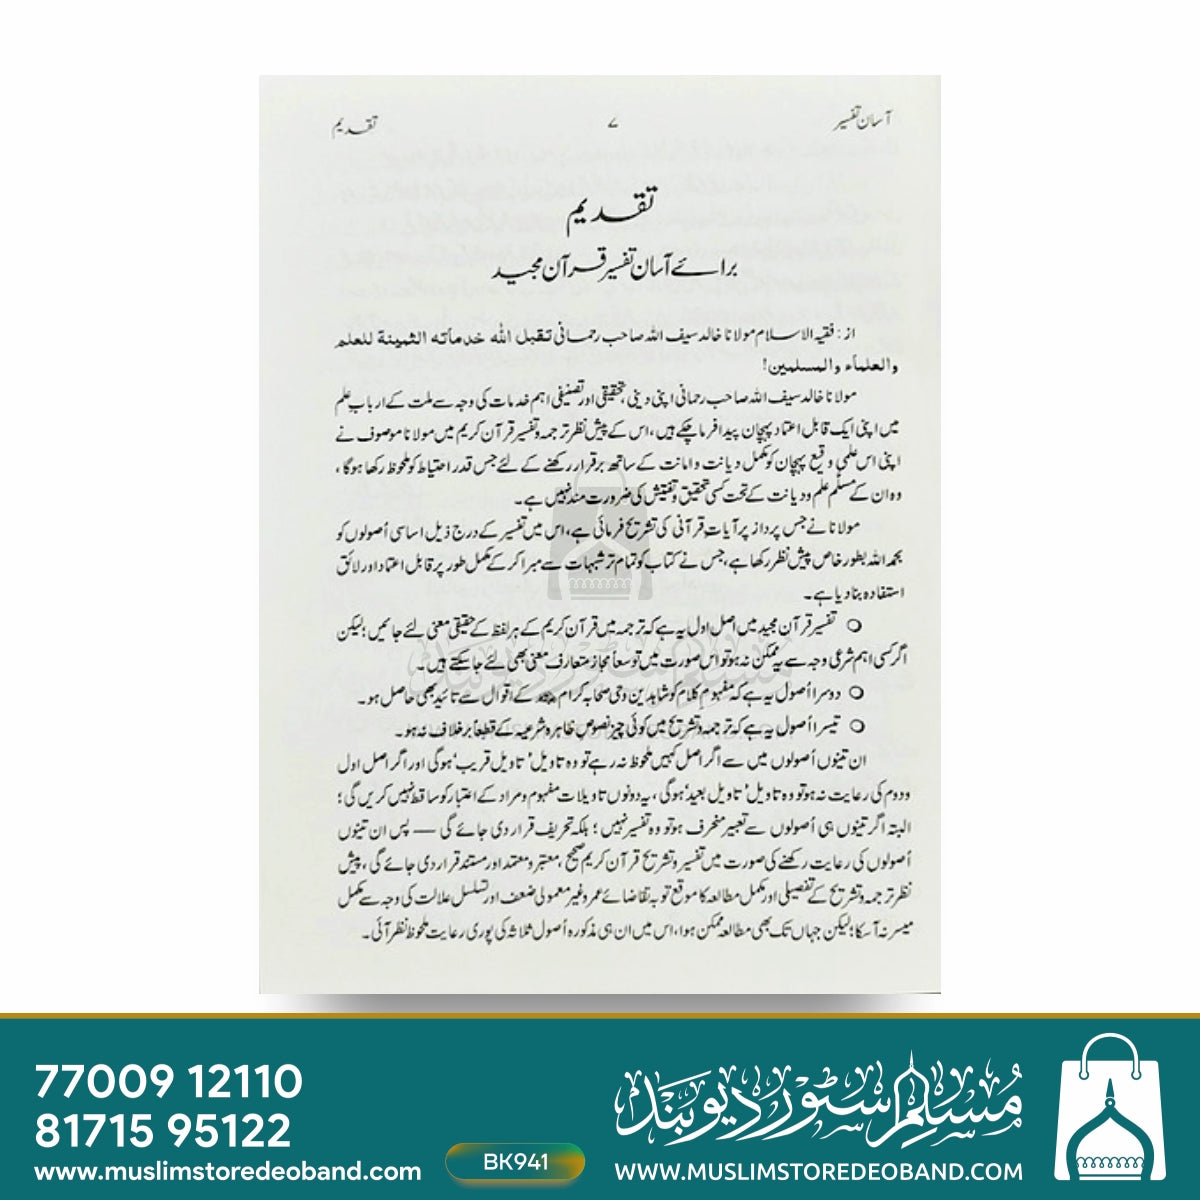 آسان تفسیر ۷ تقدیم
تقدیم
برائے آسان تفسیر قرآن مجید
از: فقیہ الاسلام مولانا خالد سیف اللہ صاحب رحمانی تقبل اللہ خدماتہ الثمینة للعلم
والعلماء والمسلمین!
مولانا خالد سیف اللہ صاحب رحمانی اپنی دینی، تحقیقی اور تصنیفی اہم خدمات کی وجہ سے ملت کے ارباب علم
میں اپنی ایک قابل اعتماد پہچان پیدا فرما چکے ہیں، اس کے پیش نظر ترجمہ و تفسیر قرآن کریم میں مولانا موصوف نے
اپنی اس علمی وقیع پہچان کو مکمل دیانت و امانت کے ساتھ برقرار رکھنے کے لئے جس قدر احتیاط کو ملحوظ رکھا ہوگا،
وہ ان کے مسلّم علم و دیانت کے تحت کسی تحقیق و تفتیش کی ضرورت مند نہیں ہے۔
مولانا نے جس پرداز پر آیات قرآنی کی تشریح فرمائی ہے، اس میں تفسیر کے درج ذیل اساسی اُصولوں کو
بحمد اللہ بطور خاص پیش نظر رکھا ہے، جس نے کتاب کو تمام تر شبہات سے مبرا کر کے مکمل طور پر قابل اعتماد اور لائق
استفادہ بنا دیا ہے۔
○ تفسیر قرآن مجید میں اصل اول یہ ہے کہ ترجمہ میں قرآن کریم کے ہر لفظ کے حقیقی معنی لئے جائیں؛ لیکن
اگر کسی اہم شرعی وجہ سے یہ ممکن نہ ہو تو اس صورت میں توسعاً مجاز متعارف معنی بھی لئے جا سکتے ہیں۔
○ دوسرا اُصول یہ ہے کہ مفہوم کلام کو شاہدین وحی صحابہ کرام ﷺ کے اقوال سے تائید بھی حاصل ہو۔
○ تیسرا اُصول یہ ہے کہ ترجمہ و تشریح میں کوئی چیز نصوص ظاہرہ شرعیہ کے قطعاً برخلاف نہ ہو۔
ان تینوں اُصولوں میں سے اگر اصل کہیں ملحوظ نہ رہے تو وہ تاویل 'تاویل قریب' ہوگی اور اگر اصل اول
و دوم کی رعایت نہ ہو تو وہ تاویل 'تاویل بعید' ہوگی، یہ دونوں تاویلات مفہوم و مراد کے اعتبار کو ساقط نہیں کریں گی؛
البتہ اگر تینوں ہی اُصولوں سے تعبیر منحرف ہو تو وہ تفسیر نہیں؛ بلکہ تحریف قرار دی جائے گی — پس ان تینوں
اُصولوں کی رعایت رکھنے کی صورت میں تفسیر و تشریح قرآن کریم صحیح، معتبر و معتمد اور مستند قرار دی جائے گی، پیش
نظر ترجمہ و تشریح کے تفصیلی اور مکمل مطالعہ کا موقع تو بہ تقاضائے عمر و غیر معمولی ضعف اور تسلسل علالت کی وجہ سے مکمل
میسر نہ آسکا؛ لیکن جہاں تک بھی مطالعہ ممکن ہوا، اس میں ان ہی مذکورہ اُصول ثلاثہ کی پوری رعایت ملحوظ نظر آئی۔
77009 12110
81715 95122
www.muslimstoredeoband.com
BK941
مسلم سٹور دیوبند
WWW.MUSLIMSTOREDEOBAND.COM